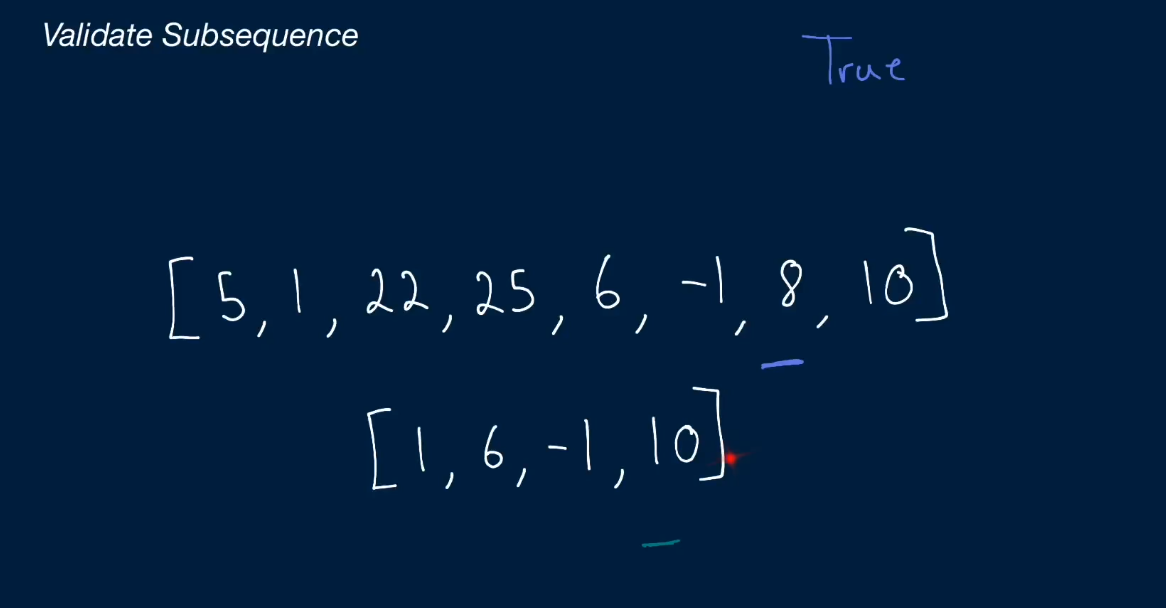 Validate Subsequence
True
[5, 1, 22, 25, 6, -1, 8, 10]
[1, 6, -1, 10]